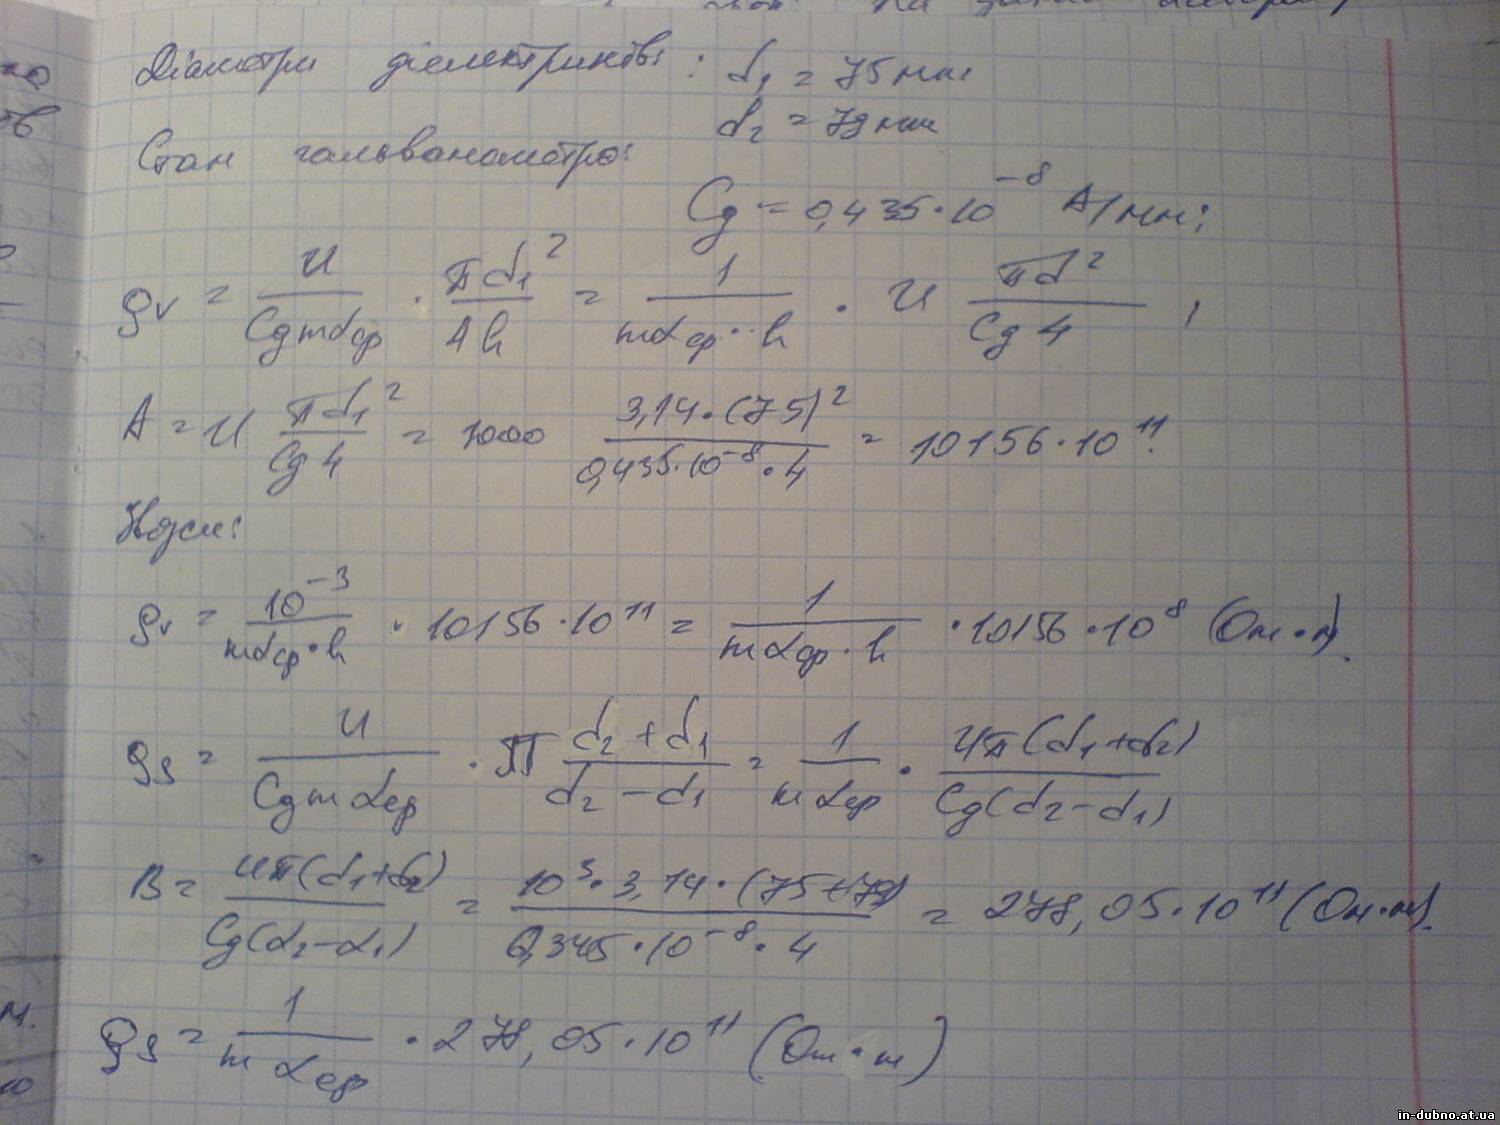 Діаметри діелектриків: d₁ = 75 мм
d₂ = 79 мм
Стан гальванометра:
Cg = 0,435·10⁻⁸ А/мм;
ρv = U / (Cg m αср) · πd₁² / 4h = 1 / (mαср · h) · U πd² / (Cg 4) ;
A = U πd₁² / (Cg 4) = 1000 3,14·(75)² / (0,435·10⁻⁸·4) = 10156·10¹¹.
ρv = 10⁻³ / (mαср·h) · 10156·10¹¹ = 1 / (mαср·h) · 10156·10⁸ (Ом·м).
ρs = U / (Cg m αср) · π (d₂ + d₁) / (d₂ − d₁) = 1 / (mαср) · Uπ(d₁+d₂) / (Cg(d₂−d₁))
B = Uπ(d₁+d₂) / (Cg(d₂−d₁)) = 10³·3,14·(75+79) / (0,345·10⁻⁸·4) = 278,05·10¹¹ (Ом·м).
ρs = 1 / (m αср) · 278,05·10¹¹ (Ом·м)
in-dubno.at.ua